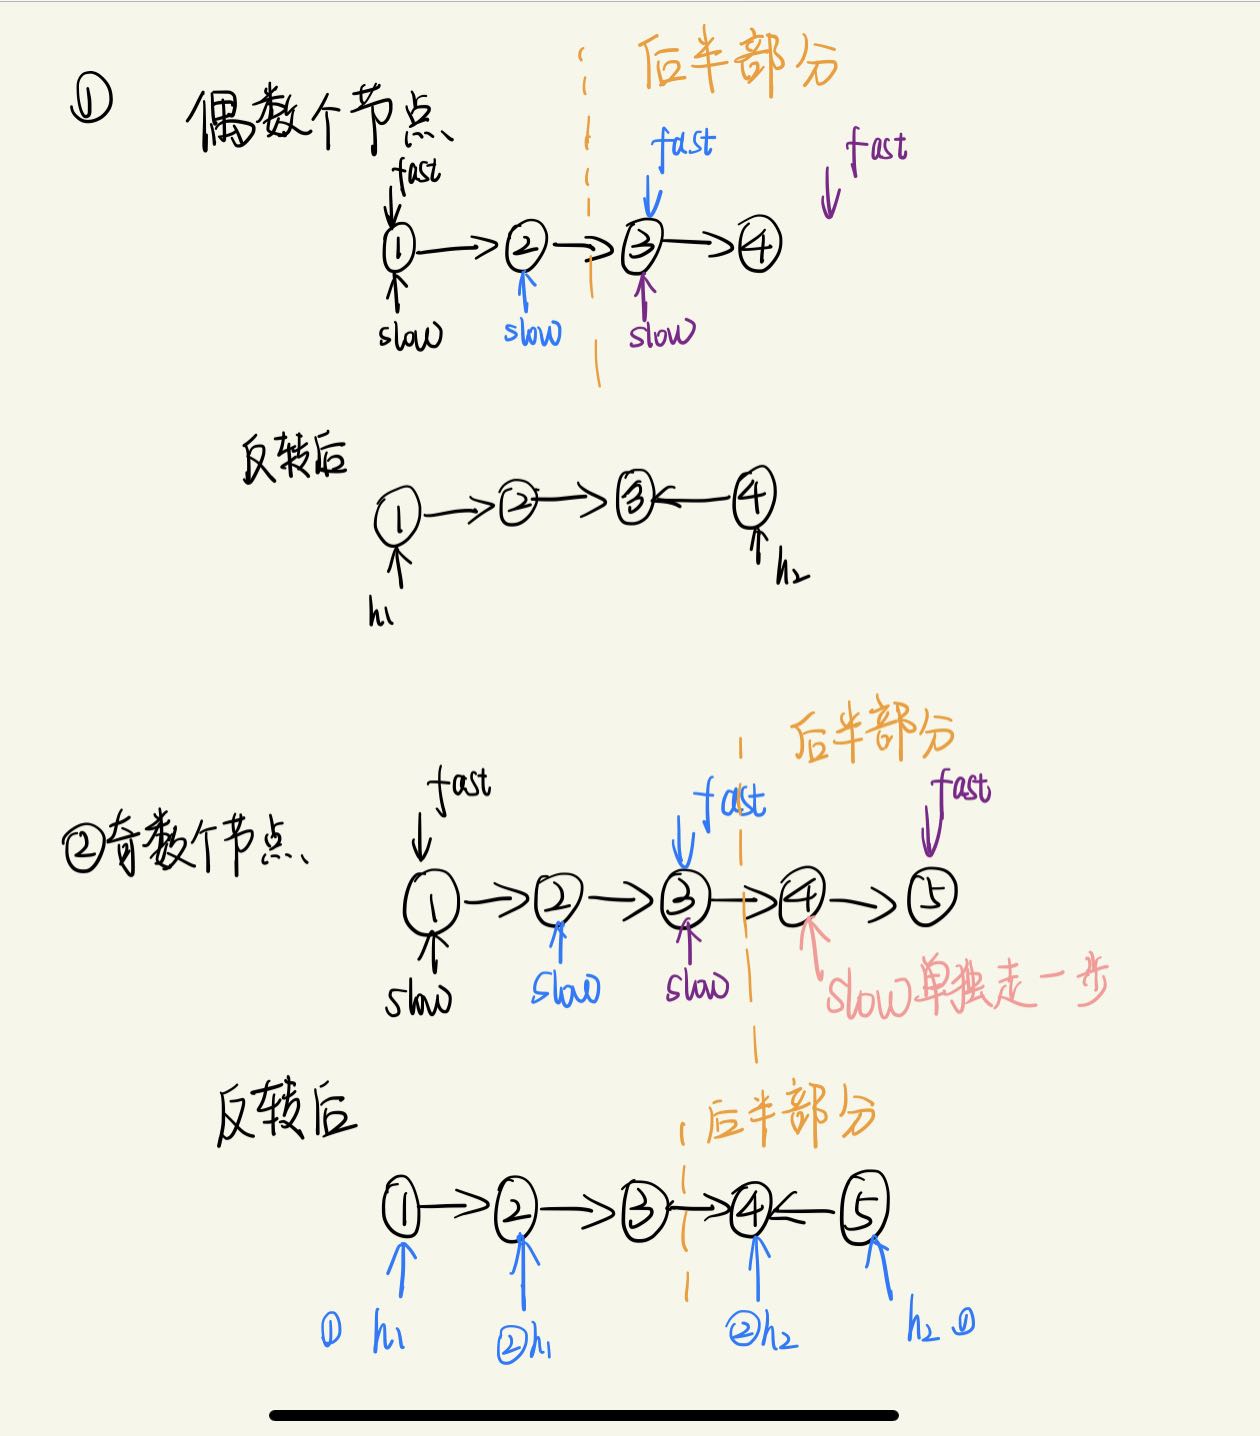 后半部分
① 偶数个节点
fast fast fast
1 2 3 4
slow slow slow
反转后
1 2 3 4
h1 h2
后半部分
fast fast fast
②奇数个节点
1 2 3 4 5
slow slow slow slow单独走一步
反转后 后半部分
1 2 3 4 5
① h1 ②h1 ②h2 h2 ①